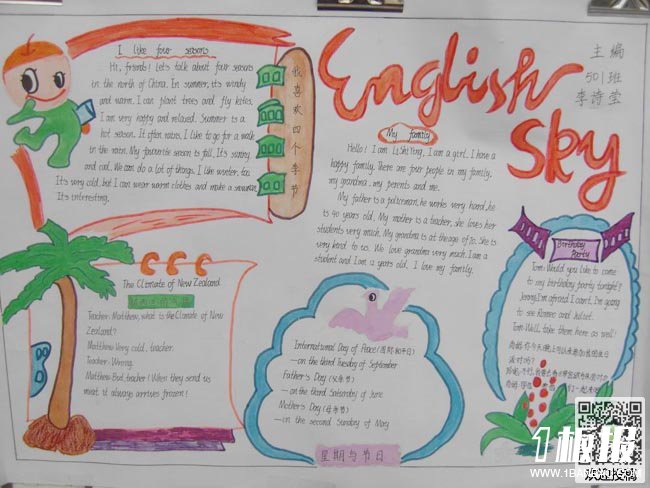 I like four seasons
Hi, friends! Let's talk about four seasons
in the north of China. In summer, it's windy
and warm. I can plant trees and fly kites.
I am very happy and relaxed. Summer is a
hot season. It often rains. I like to go for a walk
in the rain. My favourite season is fall. It's sunny
and cool. We can do a lot of things. I like winter, too.
It's very cold, but I can wear warm clothes and make a snowman.
It's interesting.
我喜欢四个季节
English
Sky
主编
501班
李诗莹
My family
Hello! I am Li ShiYing. I am a girl. I have a
happy family. There are four people in my family,
my grandma, my parents and me.
My father is a policeman. he works very hard, he
is 40 years old. My mother is a teacher, she loves her
students very much. My grandma is at the age of 70. She is
very kind to us. We love grandma very much. I am a
student and I am 12 years old. I love my family.
The Climate of New Zealand
Teacher: Matthew, what is the Climate of New
Zealand?
Matthew: Very cold, teacher.
Teacher: Wrong.
Matthew: But, teacher! When they send us
meat, it always arrives frozen!
International Day of Peace (国际和平日)
—on the third Tuesday of September
Father's Day (父亲节)
—on the third Saturday of June
Mother's Day (母亲节)
—on the second Sunday of May
星期与节日
Birthday
Party
Tom: Would you like to come
to my birthday party tonight?
Jenny: I'm afraid I can't. I'm going
to see Romeo and Juliet.
Tom: Well, take them here as well!
1板报
WWW.1BANBAO.COM